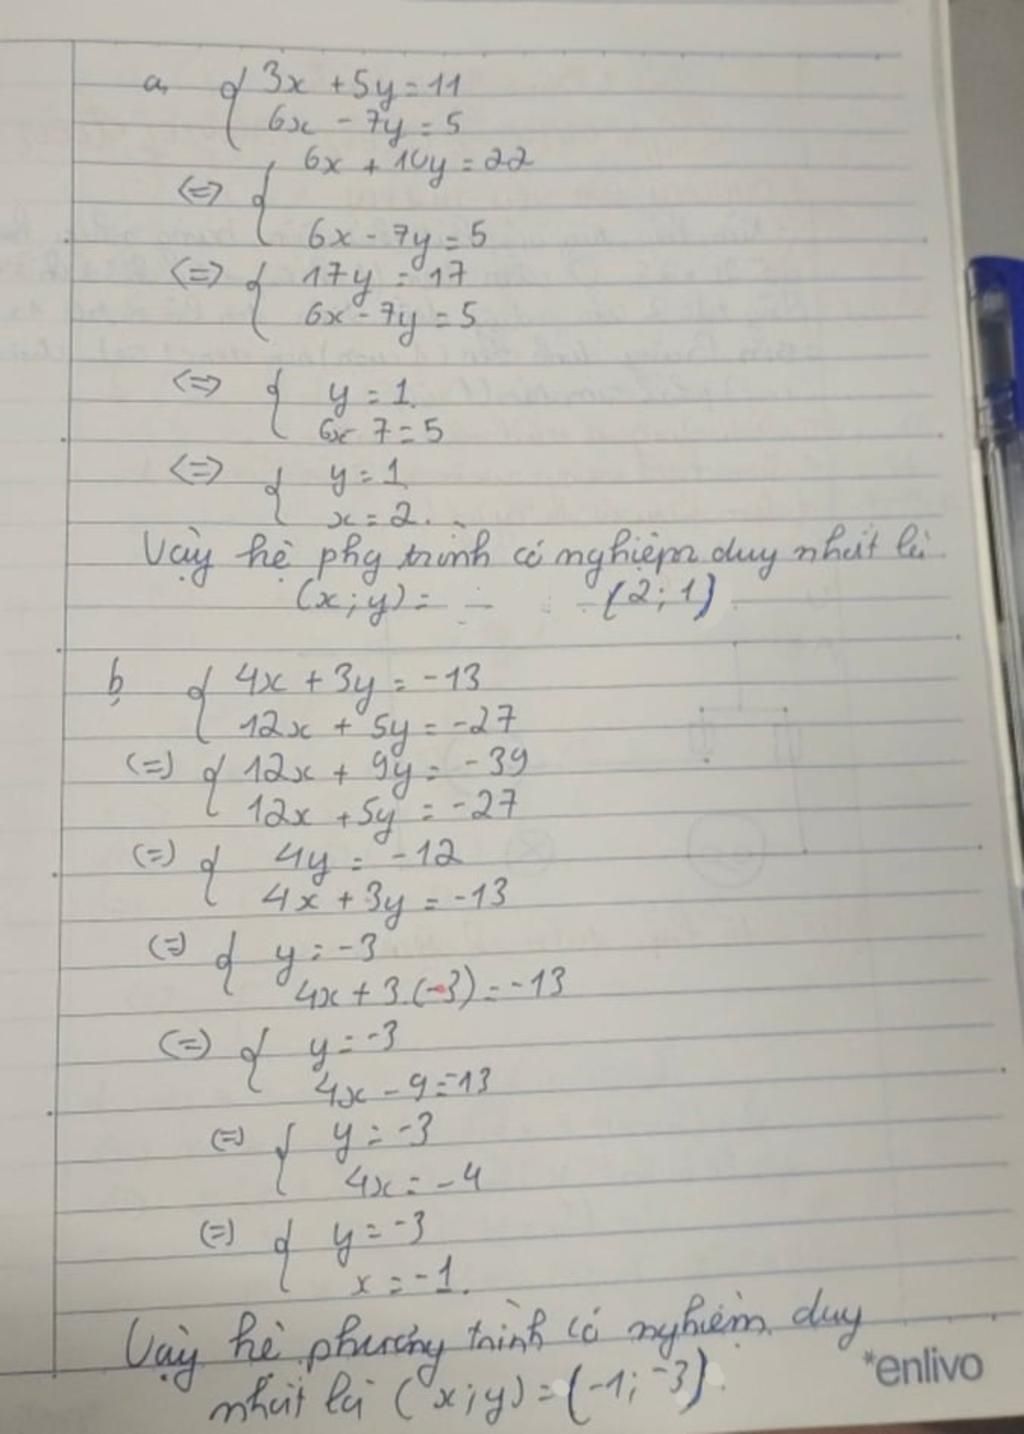 a, { 3x + 5y = 11
6x - 7y = 5
<=> { 6x + 10y = 22
6x - 7y = 5
<=> { 17y = 17
6x - 7y = 5
<=> { y = 1
6x - 7 = 5
<=> { y = 1
x = 2.
Vậy hệ phg trình có nghiệm duy nhất là
(x; y) = (2; 1)
b, { 4x + 3y = -13
12x + 5y = -27
(=) { 12x + 9y = -39
12x + 5y = -27
(=) { 4y = -12
4x + 3y = -13
(=) { y = -3
4x + 3.(-3) = -13
(=) { y = -3
4x - 9 = -13
(=) { y = -3
4x = -4
(=) { y = -3
x = -1.
Vậy hệ phương trình có nghiệm duy
nhất là (x; y) = (-1; -3).
*enlivo